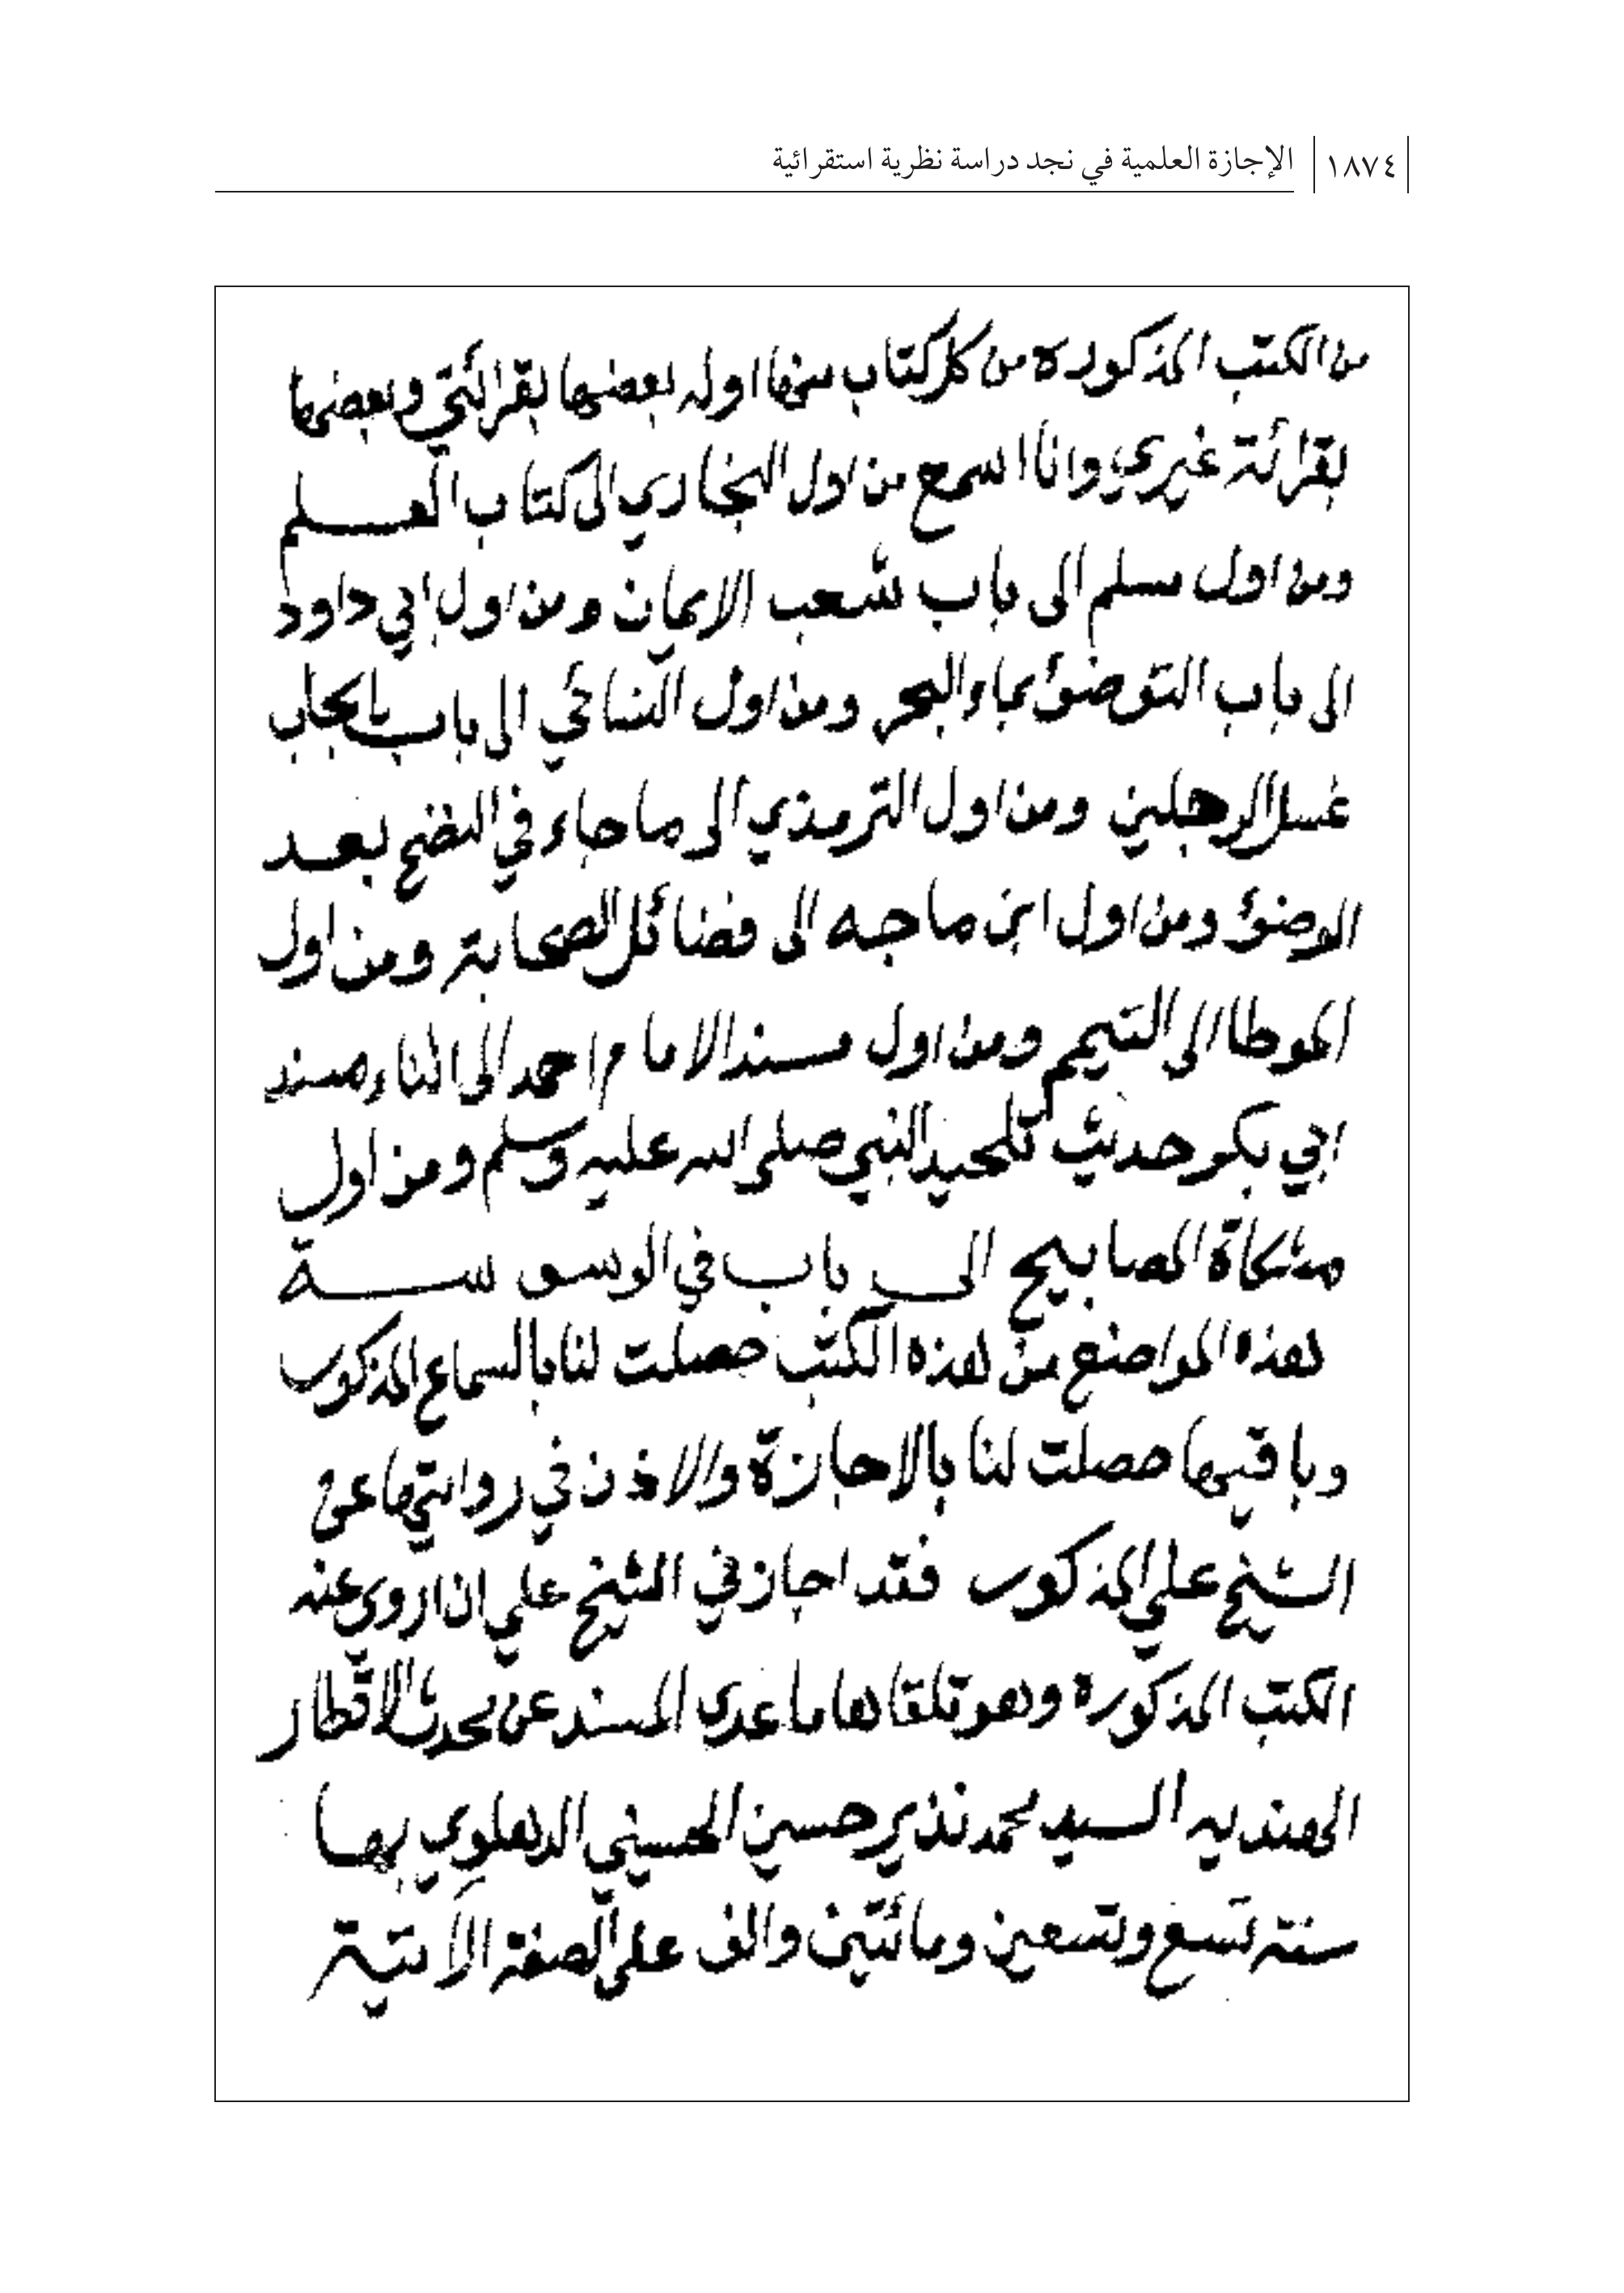 ١٨٧٤ الإجازة العلمية في نجد دراسة نظرية استقرائية
من الكتب المذكورة من كل كتاب منها اوله بعضها بقرائتي وبعضها
بقرائة غيري وانا اسمع من اول البخاري الى كتاب العلم
ومن اول مسلم الى باب شعب الايمان ومن اول ابي داود
الى باب التوضؤ بماء البحر ومن اول النسائي الى باب بايجاب
غسل الرجلين ومن اول الترمذي الى ما جاء في النضح بعد
الوضؤ ومن اول ابن ماجه الى فضائل الصحابة ومن اول
الموطا الى التيمم ومن اول مسند الامام احمد الى مسند
ابي بكر حديث النبي صلى الله عليه وسلم ومن اول
مشكاة المصابيح الى باب في الوسوسة
هذه المواضع من هذه الكتب حصلت لنا بالسماع المذكور
وباقيها حصلت لنا بالاجازة والاذن في روايتها عن
الشيخ علي المذكور فقد اجازني الشيخ علي ان اروي عنه
الكتب المذكورة وهو تلقاها ما عدى المسند عن محدث الاقطار
الهنديه السيد محمد نذير حسين الحسيني الدهلوي بها
سنة تسع وتسعين ومائتين والف على الصفة الاتية